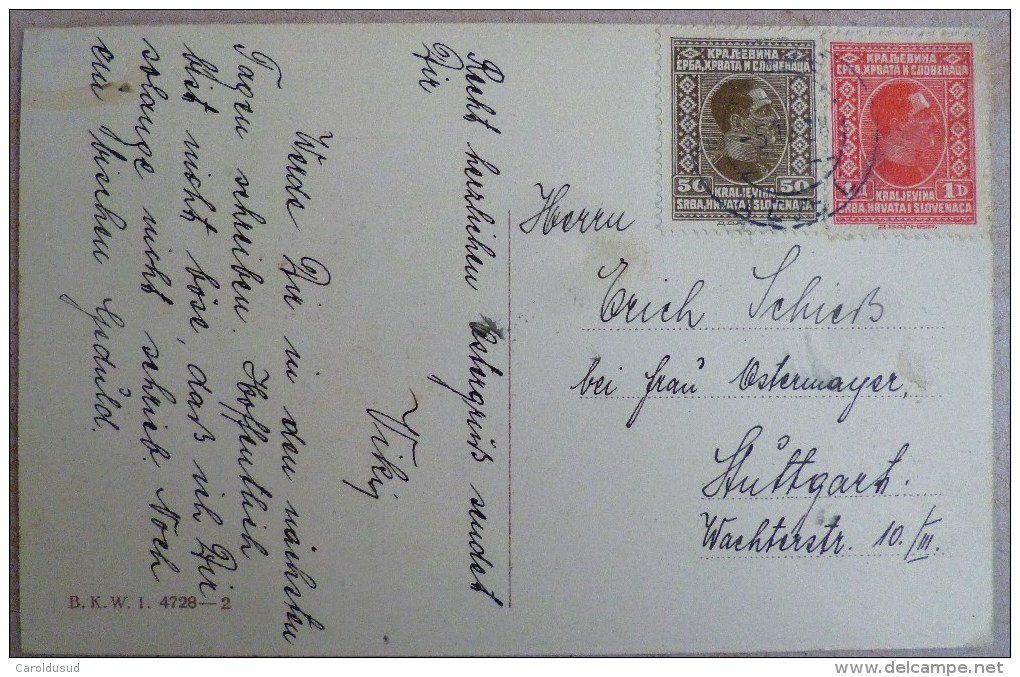 Recht herzlichen Ostergruß sendet
Dir
Vikiy
Werde Dir in den nächsten
Tagen schreiben. Hoffentlich
bist nicht böse, daß ich Dir
solange nicht schrieb. Noch
ein bischen Geduld.
B. K. W. I. 4728—2
КРАЉЕВИНА
СРБА, ХРВАТА И СЛОВЕНАЦА
50 50
KRALJEVINA
SRBA, HRVATA I SLOVENACA
КРАЉЕВИНА
СРБА, ХРВАТА И СЛОВЕНАЦА
1D
KRALJEVINA
SRBA, HRVATA I SLOVENACA
Herrn
Erich Schieß
bei Frau Ostermayer,
Stuttgart.
Wachterstr. 10./III.
Caroldusud
http://www.delcampe.net